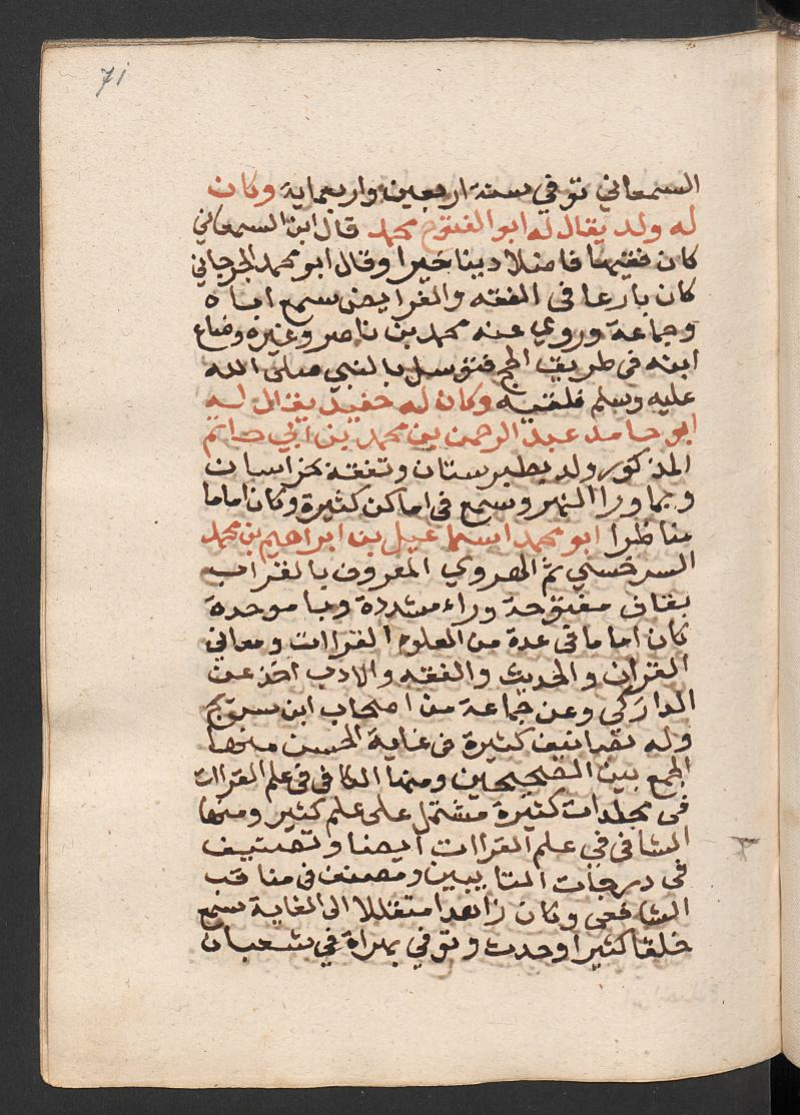 71
السمعاني توفي سنة اربعين واربعماية وكان
له ولد يقال له ابو الفتوح محمد قال ابن السمعاني
كان فقيها فاضلا دينا خيرا وقال ابو محمد الجرجاني
كان بارعا في الفقه والفرايض سمع اباه
وجماعة وروي عنه محمد بن ناصر وغيره وضاع
ابنه في طريق الحج فتوسل بالنبي صلى الله
عليه وسلم فلقيه وكان له حفيد يقال له
ابو حامد عبد الرحمن بن محمد بن ابي حاتم
المذكور ولد بطبرستان وتفقه بخراسان
وبما ورا النهر وسمع في اماكن كثيرة وكان اماما
مناظرا ابو محمد اسماعيل بن ابراهيم بن محمد
السرخسني ثم الهروي المعروف بالقراب
بقاف مفتوحة وراء مشددة وبا موحدة
كان اماما في عدة من العلوم القراات ومعاني
القران والحديث والفقه والادب اخذ عن
الداركي وعن جماعة من اصحاب ابن سريج
وله تصانيف كثيرة في غاية الحسن منها
الجمع بين الصحيحين ومنها الكافي في علم القراات
في مجلدات كثيرة مشتمل على علم كثير ومنها
الشافي في علم القراات ايضا وتصنيف
في درجات التايبين ومصنف في مناقب
الشافعي وكان زاهدا متقللا الى الغاية سمع
خلقا كثيرا وحدث وتوفي بهراة في شعبان